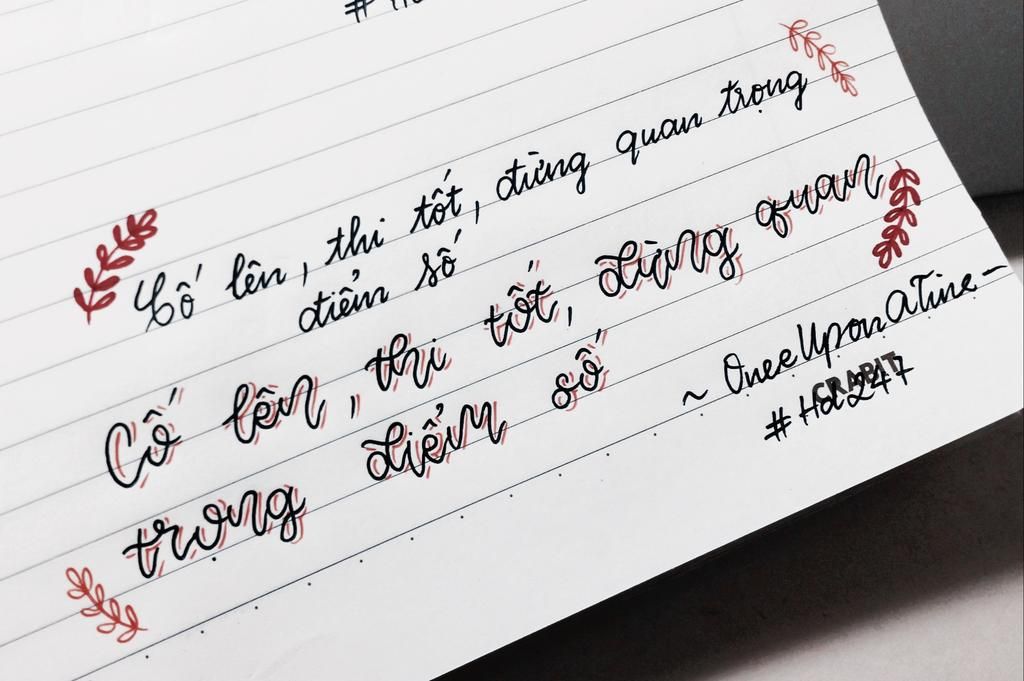 Cố lên, thi tốt, đừng quan trọng
điểm số
Cố lên, thi tốt, đừng quan
trọng điểm số
~ OnceUponATime-
CRABIT
#Hd247